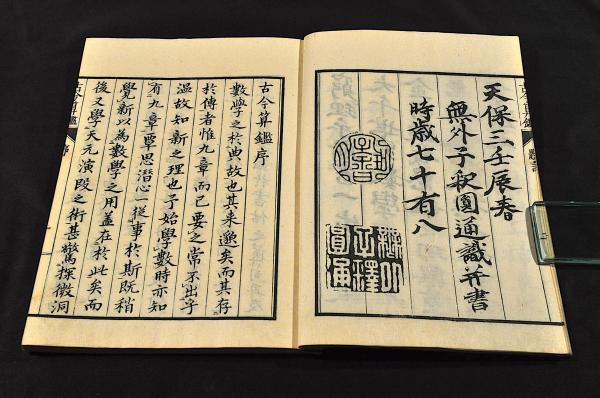 天保三壬辰春
無外子釈圓通識并書
時歳七十有八
古今算鑑序
數學之於典故也其来邈矣而其存
於傳者惟九章而已要之當不出乎
温故知新之理也予始學數時亦知
有九章覃思潜心一從事於斯既稍
覺新以為數學之用蓋在於此矣而
後又學天元演段之術甚驚探微洞
古今算鑑 序